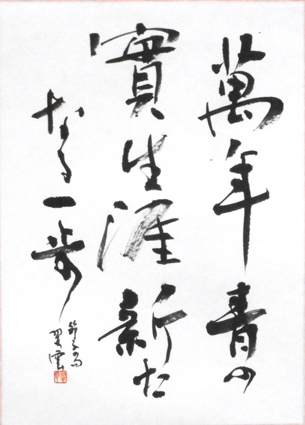 萬年青の
實生涯新た
なる一歩
翠雲